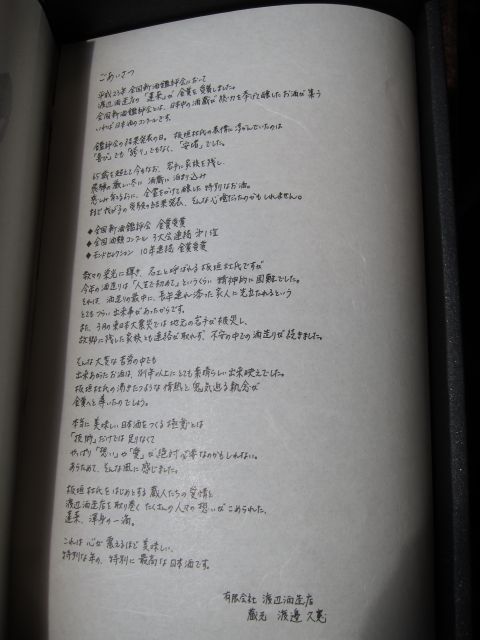 ごあいさつ
平成23年 全国新酒鑑評会において
渡辺酒造店の「蓬莱」が金賞を受賞しました。
全国新酒鑑評会とは、日本中の酒蔵が総力を挙げて醸したお酒が集う
いわば日本酒のコンクールです。
鑑評会の結果発表の日。板垣杜氏の表情に浮かんでいたのは
「喜び」でも「誇り」でもなく、「安堵」でした。
65歳を超えて今もなお、岩手に家族を残し、
飛騨の厳しい冬に 酒蔵に泊り込み
慈しみ 全霊をかけて醸した特別なお酒。
まるで我が子の受験の結果発表、そんな心境だったのかもしれません。
◆全国新酒鑑評会 金賞受賞
◆全国酒類コンクール 3大会連続 第1位
◆モンドセレクション 10年連続 金賞受賞
数々の栄光に輝き、名工と呼ばれる板垣杜氏ですが
今年の酒造りは「人生で初めて」というくらい 精神的に困難でした。
それは、酒造りの最中に、長年連れ添った家人に先立たれるという
とてもつらい出来事があったからです。
また、3月の東日本大震災では地元の岩手が被災し、
故郷に残した家族とも連絡が取れず、不安の中での酒造りが続きました。
そんな大変な苦労の中でも
出来あがったお酒は、例年以上にとても素晴らしい出来映えでした。
板垣杜氏の沸きたつような情熱と鬼気迫る執念が
金賞へと導いたのでしょう。
本当に美味しい日本酒をつくる極意とは
「技術」だけでは足りなくて
やっぱり「想い」や「愛」が絶対必要なのかもしれない。
あらためて、そんな風に感じました。
板垣杜氏をはじめとする蔵人たちの愛情と
渡辺酒造店を取り巻くたくさんの人々の想いがこめられた、
蓬莱、渾身の一滴。
これは心が震えるほど美味しい、
特別な年の、特別に最高な日本酒です。
有限会社 渡辺酒造店
蔵元 渡邉 久憲